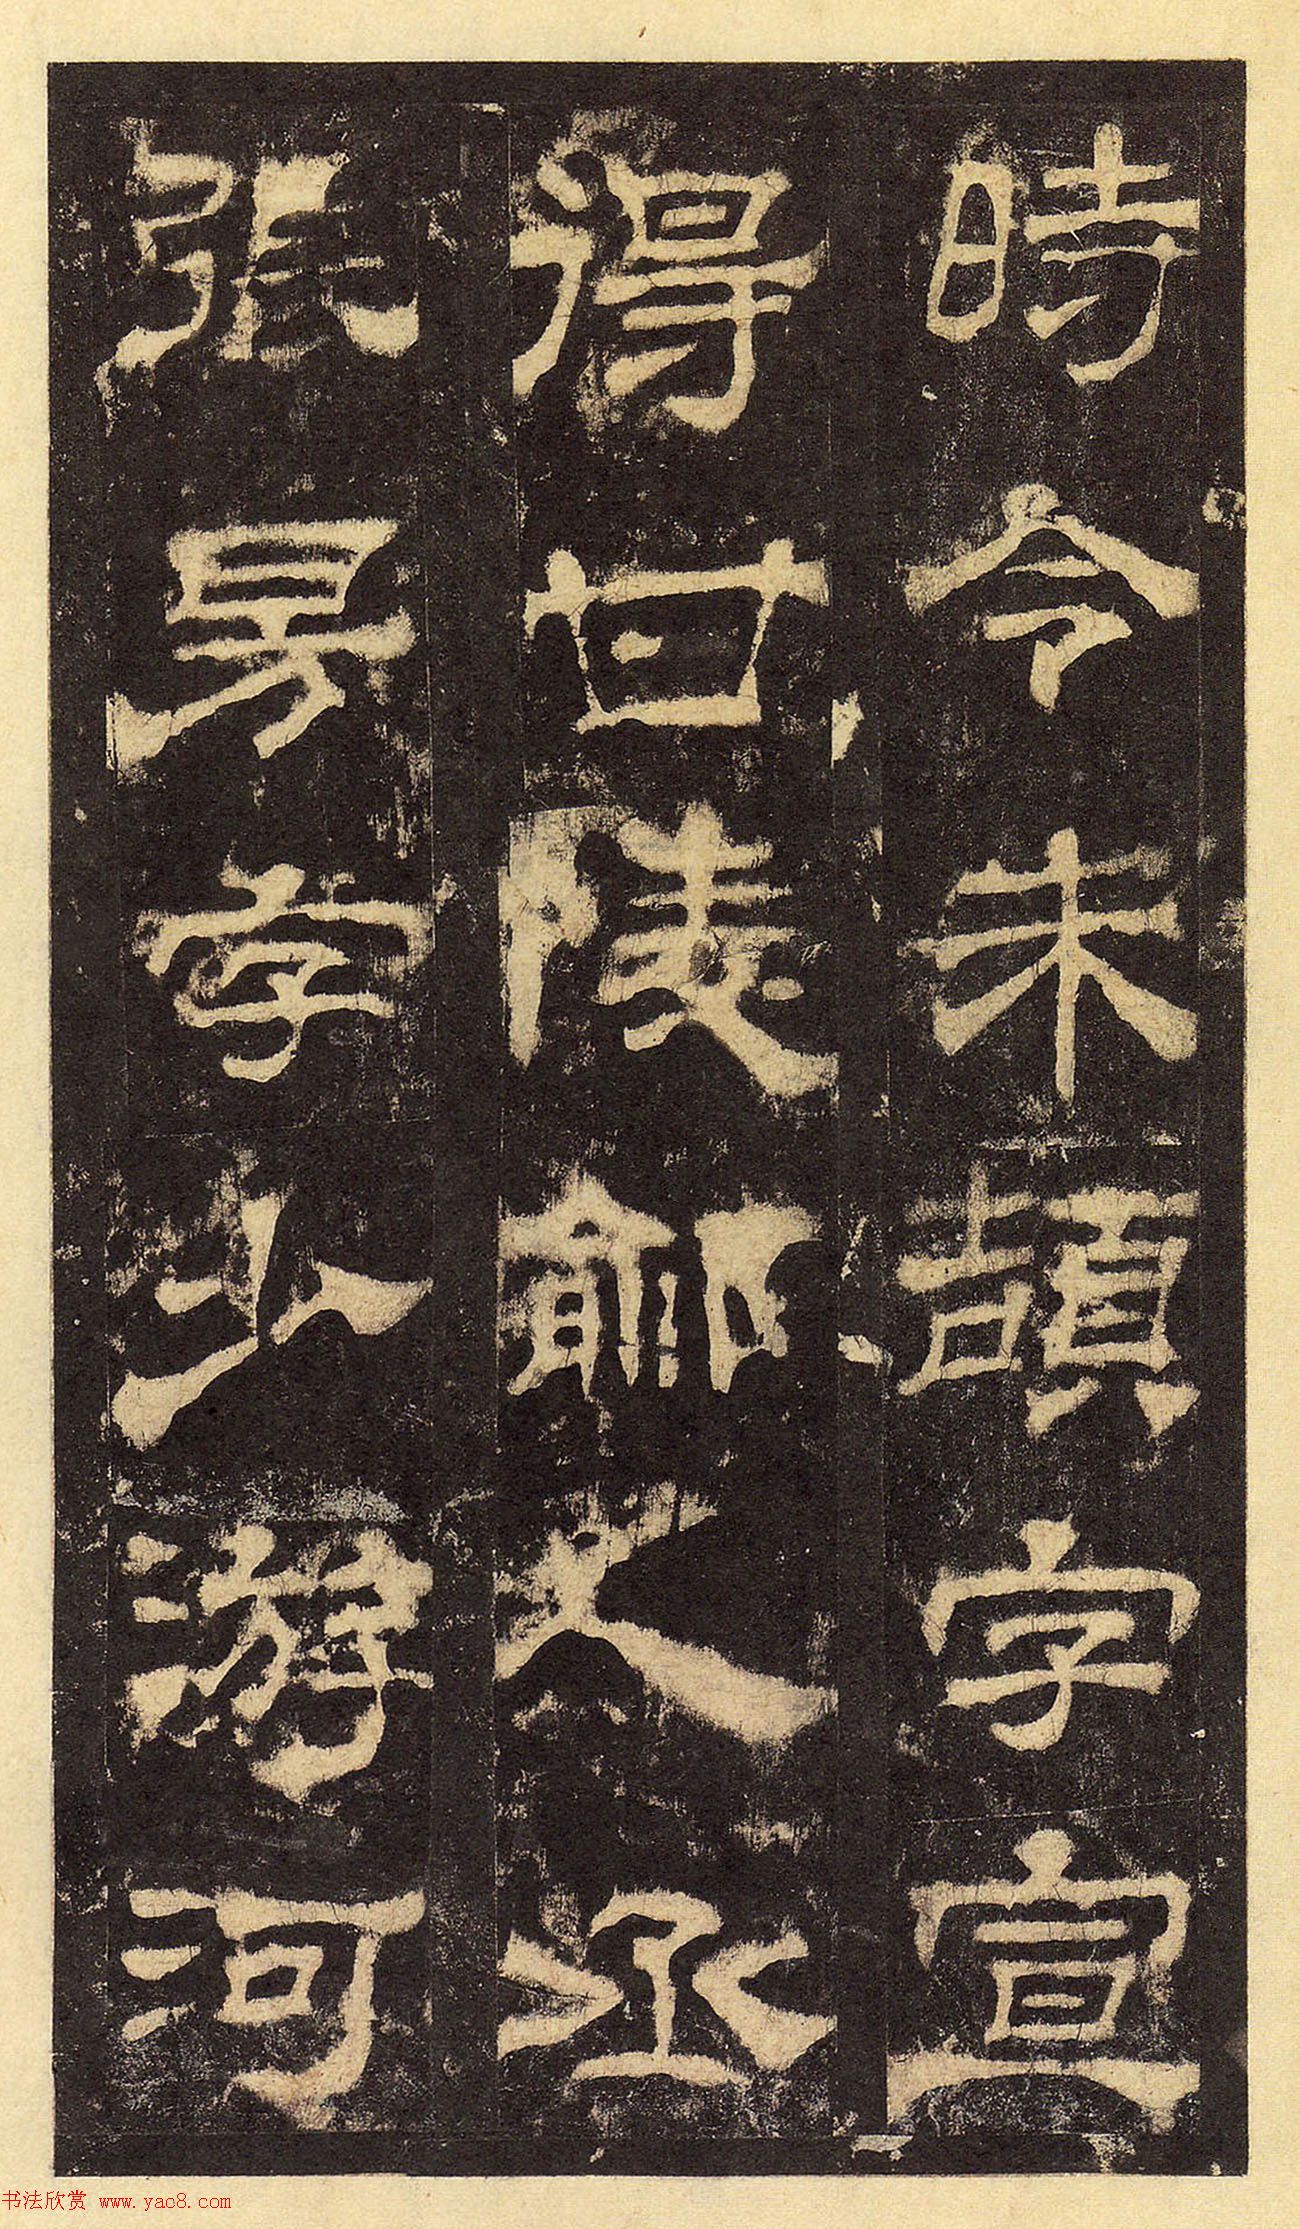 時令朱頡字宣
得甘陵鄃人丞
張昉字少游河
书法欣赏 www.yac8.com